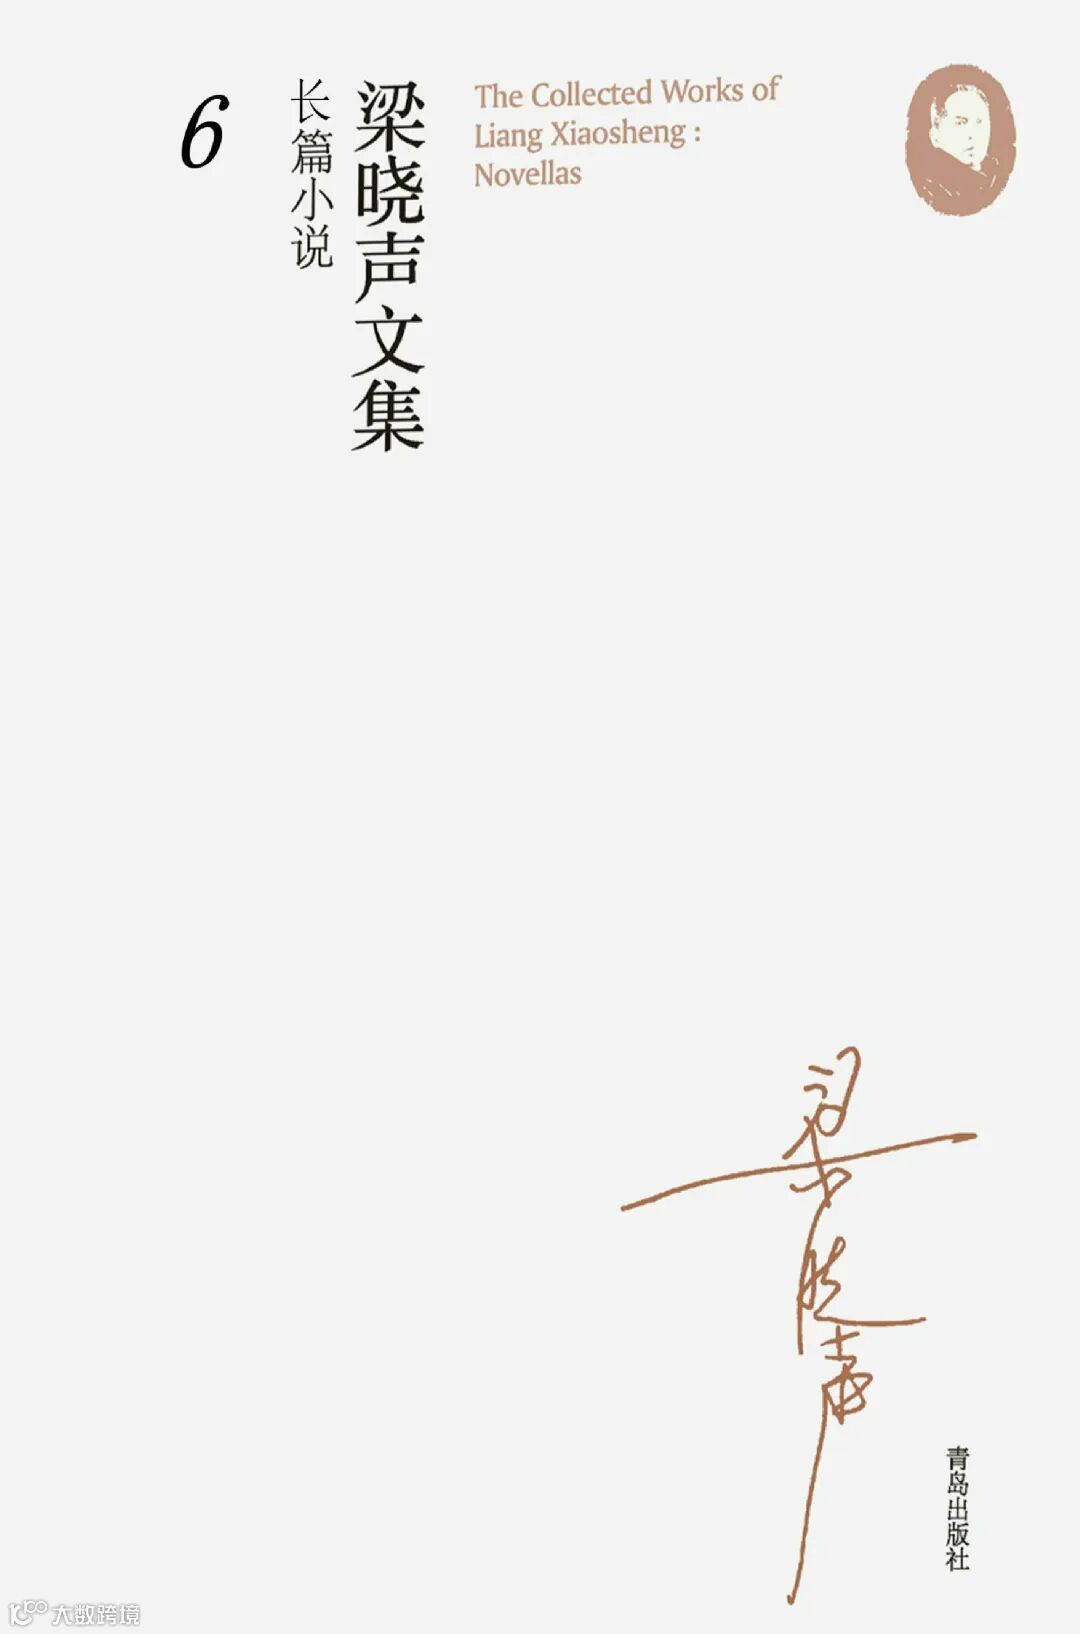 6
长篇小说
梁晓声文集
The Collected Works of
Liang Xiaosheng :
Novellas
梁晓声
青岛出版社
大数跨境